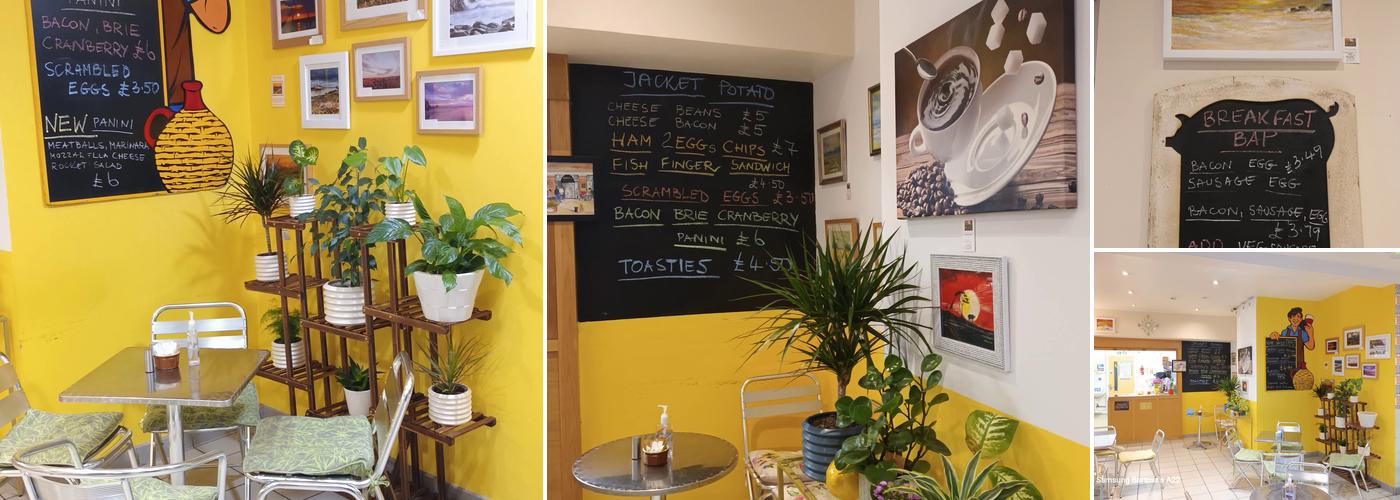 PANINI
BACON, BRIE
CRANBERRY £6
SCRAMBLED
EGGS £3.50
NEW PANINI
MEATBALLS, MARINARA
MOZZARELLA CHEESE
ROCKET SALAD
£6
JACKET POTATO
CHEESE BEANS £5
CHEESE BACON £5
HAM 2EGGS CHIPS £7
FISH FINGER SANDWICH
£4.50
SCRAMBLED EGGS £3.50
BACON BRIE CRANBERRY
PANINI £6
TOASTIES £4.50
BREAKFAST
BAP
BACON EGG £3.49
SAUSAGE EGG
BACON, SAUSAGE, EGG
£3.79
ADD